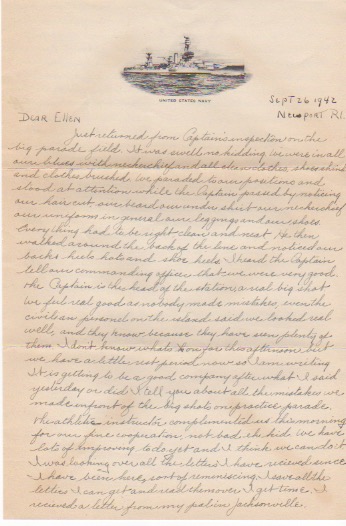 UNITED STATES NAVY
Sept 26 1942
Newport R.I.
Dear Ellen
Just returned from Captain's inspection on the
big parade field. It was swell no kidding we were in all
our blues with neckerchief and all clean clothes, shoes shine
and clothes brushed, we paraded to our positions and
stood at attention while the Captain passed by noticing
our hair cut our beard our undershirt our neckerchief
our uniform in general our leggings and our shoes
Everything had to be right clean and neat. He then
walked around the back of the line and noticed our
backs heels hats and shoe heels. I heard the Captain
tell our commanding officer that we were very good.
the Captain is the head of the station a real big shot
We feel real good as nobody made mistakes, even the
civilian personel on the island said we looked real
well, and they know because they have seen plenty of
them I don't know whats on for this afternoon but
we have a little rest period now so I'm writing
It is getting to be a good company after what I said
yesterday or did I tell you about all the mistakes we
made infront of the big shots on practice parade.
the athletic instructor complimented us this morning
for our fine cooperation, not bad, eh kid we have
lots of improving to do yet and I think we can do it
I was looking over all the letters I have recieved since
I have been here, sort of reminissing. I save all the
letters I can get and read them over if I get time. I
recieved a letter from my pal in Jacksonville.